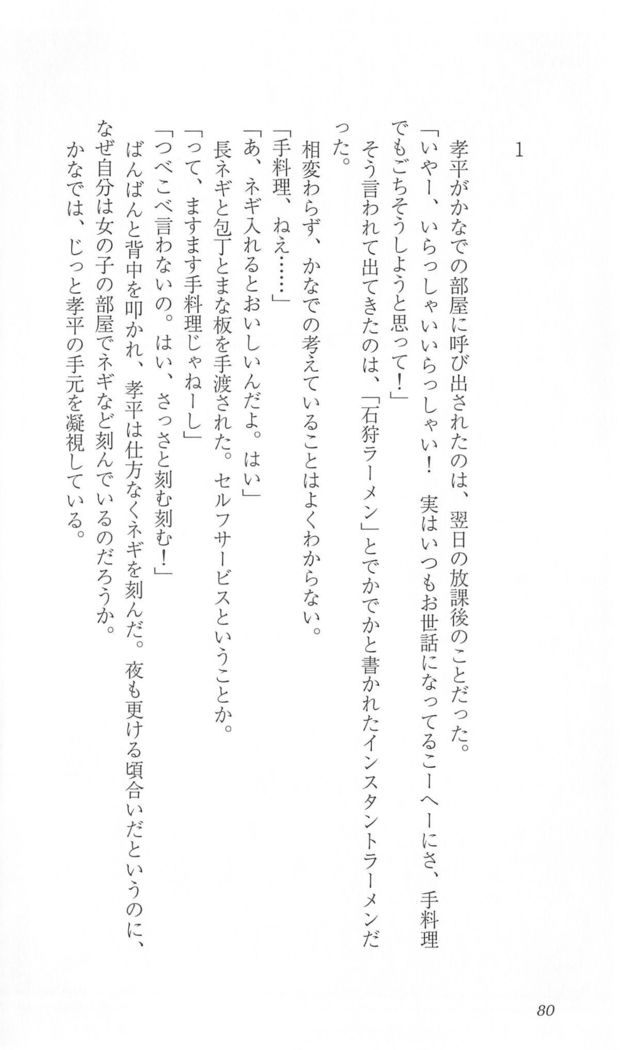 1
孝平がかなでの部屋に呼び出されたのは、翌日の放課後のことだった。
「いやー、いらっしゃいいらっしゃい！　実はいつもお世話になってるこーへーにさ、手料理
でもごちそうしようと思って！」
そう言われて出てきたのは、「石狩ラーメン」とでかでかと書かれたインスタントラーメンだ
った。
相変わらず、かなでの考えていることはよくわからない。
「手料理、ねえ……」
「あ、ネギ入れるとおいしいんだよ。はい」
長ネギと包丁とまな板を手渡された。セルフサービスということか。
「って、ますます手料理じゃねーし」
「つべこべ言わないの。はい、さっさと刻む刻む！」
ばんばんと背中を叩かれ、孝平は仕方なくネギを刻んだ。夜も更ける頃合いだというのに、
なぜ自分は女の子の部屋でネギなど刻んでいるのだろうか。
かなでは、じっと孝平の手元を凝視している。
80